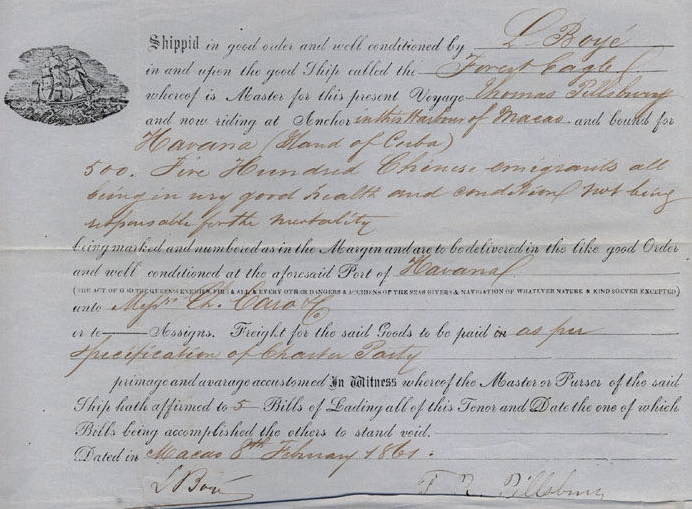 Shippid in good order and well conditioned by L. Boyé
in and upon the good Ship called the Forest Eagle
whereof is Master for this present Voyage Thomas Pillsbury
and now riding at Anchor in this Harbour of Macao and bound for
Havana (Island of Cuba)
500. Five Hundred Chinese emigrants all
being in very good health and condition not being
responsable for the mortality
being marked and numbered as in the Margin and are to be delivered in the like good Order
and well conditioned at the aforesaid Port of Havana
(THE ACT OF GOD THE QUEENS ENEMIES, FIRE & ALL & EVERY OTHER DANGERS & ACCIDENS OF THE SEAS RIVERS & NAVIGATION OF WHATEVER NATURE & KIND SOEVER EXCEPTED)
unto Messrs. Ch. Caro & Co
or to Assigns. Freight for the said Goods to be paid in as per
specification of Charter Party
primage and avarage accustomed In Witness whereof the Master or Purser of the said
Ship hath affirmed to 5 Bills of Loading all of this Tenor and Date the one of which
Bills being accomplished the others to stand void.
Dated in Macao 8th February 1861.
L Boyé T. Pillsbury